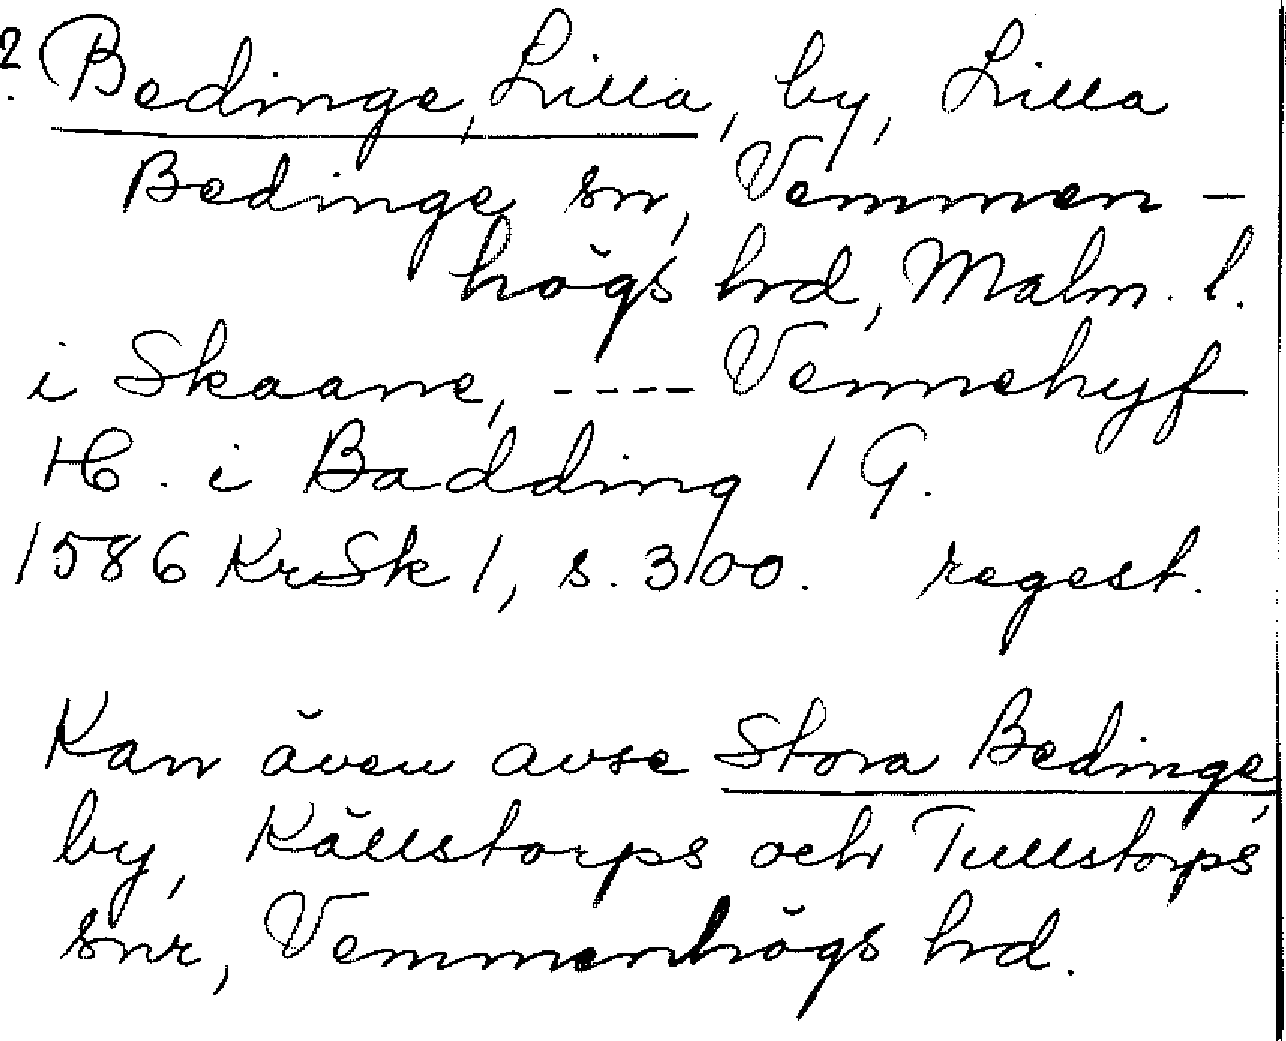 2. Bedinge, Lilla, by, Lilla
Bedinge sn, Vemmen-
högs hrd, Malm. l.
i Skaane, ---- Vennehyf
H. i Badding 1 G.
1586 KrSk 1, s. 300. regest.
Kan även avse Stora Bedinge,
by, Källstorps och Tullstorps
snr, Vemmenhögs hrd.